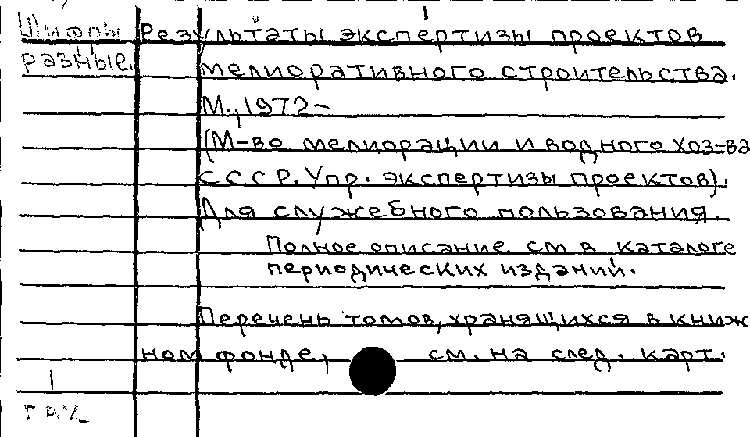 Шифры Результаты экспертизы проектов
разные. мелиоративного строительства.
М., 1972-
(М-во мелиорации и водного хоз-ва
СССР. Упр. экспертизы проектов).
Для служебного пользования.
Полное описание см в каталоге
периодических изданий.
Перечень томов, хранящихся в книж
ном фонде, см. на след. карт.